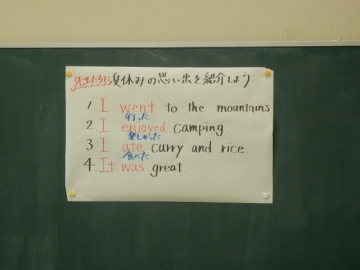 先生たちに夏休みの思い出を紹介しよう
1. I went to the mountains
行った
2. I enjoyed camping.
楽しかった
3 I ate curry and rice
食べた
4. It was great.